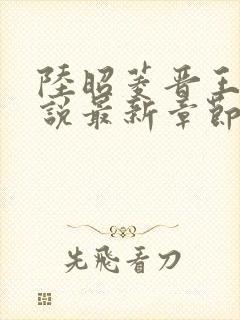 陸昭菱晋王
說最新章節
先飛看刀